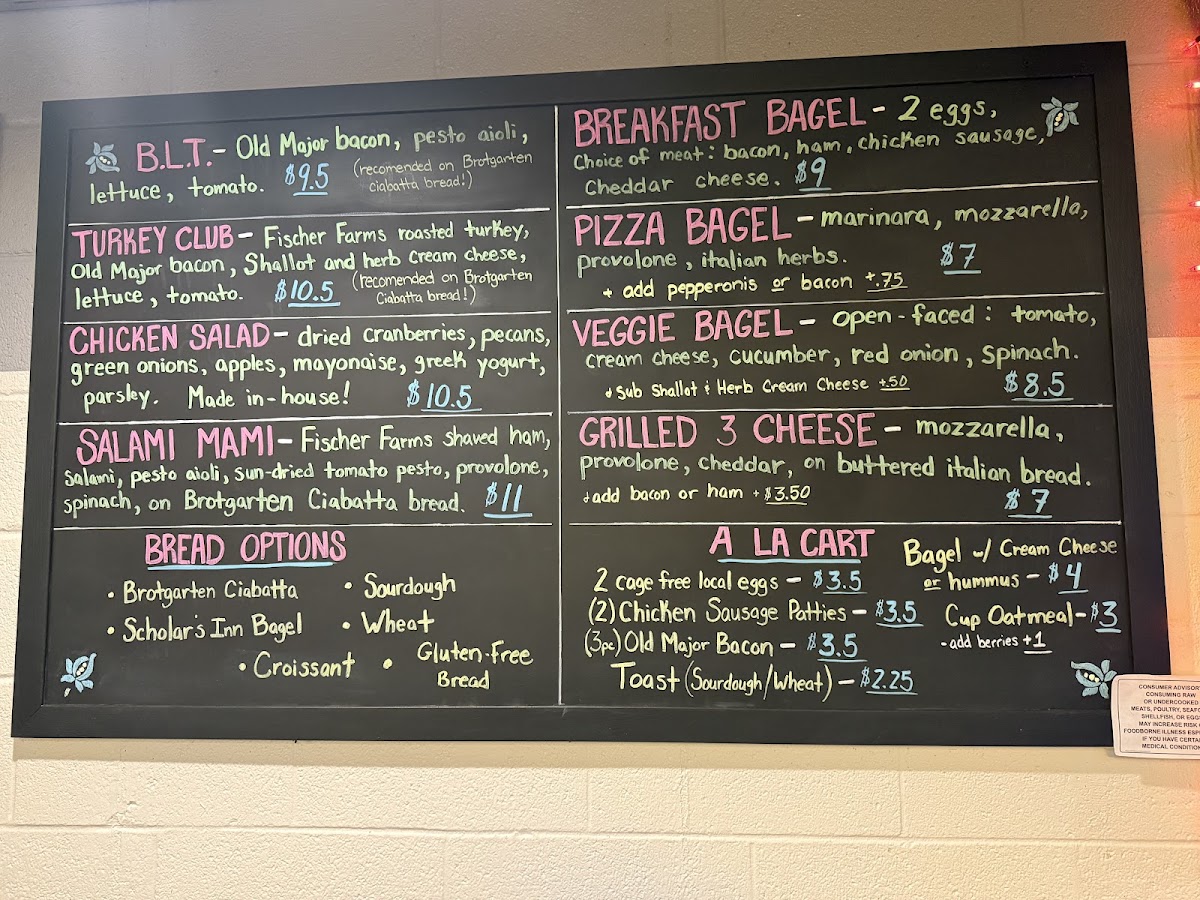 B.L.T. - Old Major bacon, pesto aioli,
lettuce, tomato. $9.5 (recomended on Brotgarten
ciabatta bread!)
TURKEY CLUB - Fischer Farms roasted turkey,
Old Major bacon, Shallot and herb cream cheese,
lettuce, tomato. $10.5 (recomended on Brotgarten
Ciabatta bread!)
CHICKEN SALAD - dried cranberries, pecans,
green onions, apples, mayonaise, greek yogurt,
parsley. Made in-house! $10.5
SALAMI MAMI - Fischer Farms shaved ham,
Salami, pesto aioli, sun-dried tomato pesto, provolone,
spinach, on Brotgarten Ciabatta bread. $11
BREAD OPTIONS
• Brotgarten Ciabatta • Sourdough
• Scholar's Inn Bagel • Wheat
• Croissant • Gluten-Free
Bread
BREAKFAST BAGEL - 2 eggs,
Choice of meat: bacon, ham, chicken sausage,
Cheddar cheese. $9
PIZZA BAGEL - marinara, mozzarella,
provolone, italian herbs. $7
+ add pepperonis or bacon +.75
VEGGIE BAGEL - open-faced: tomato,
cream cheese, cucumber, red onion, spinach.
+ Sub Shallot & Herb Cream Cheese +.50 $8.5
GRILLED 3 CHEESE - mozzarella,
provolone, cheddar, on buttered italian bread.
+ add bacon or ham + $3.50 $7
A LA CART
2 cage free local eggs - $3.5
(2) Chicken Sausage Patties - $3.5
(3pc) Old Major Bacon - $3.5
Toast (Sourdough/Wheat) - $2.25
Bagel w/ Cream Cheese
or hummus - $4
Cup Oatmeal - $3
- add berries +1
CONSUMER ADVISORY
CONSUMING RAW
OR UNDERCOOKED
MEATS, POULTRY,
SHELLFISH, OR
MAY INCREASE RISK
FOODBORNE ILLNESS
IF YOU HAVE
MEDICAL